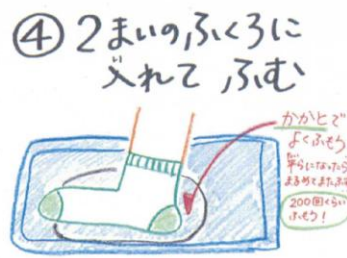 ④2まいのふくろに
入れて ふむ
かかとで
よくふもう
平らになったら
まるめてまたふむ
200回くらい
ふもう!